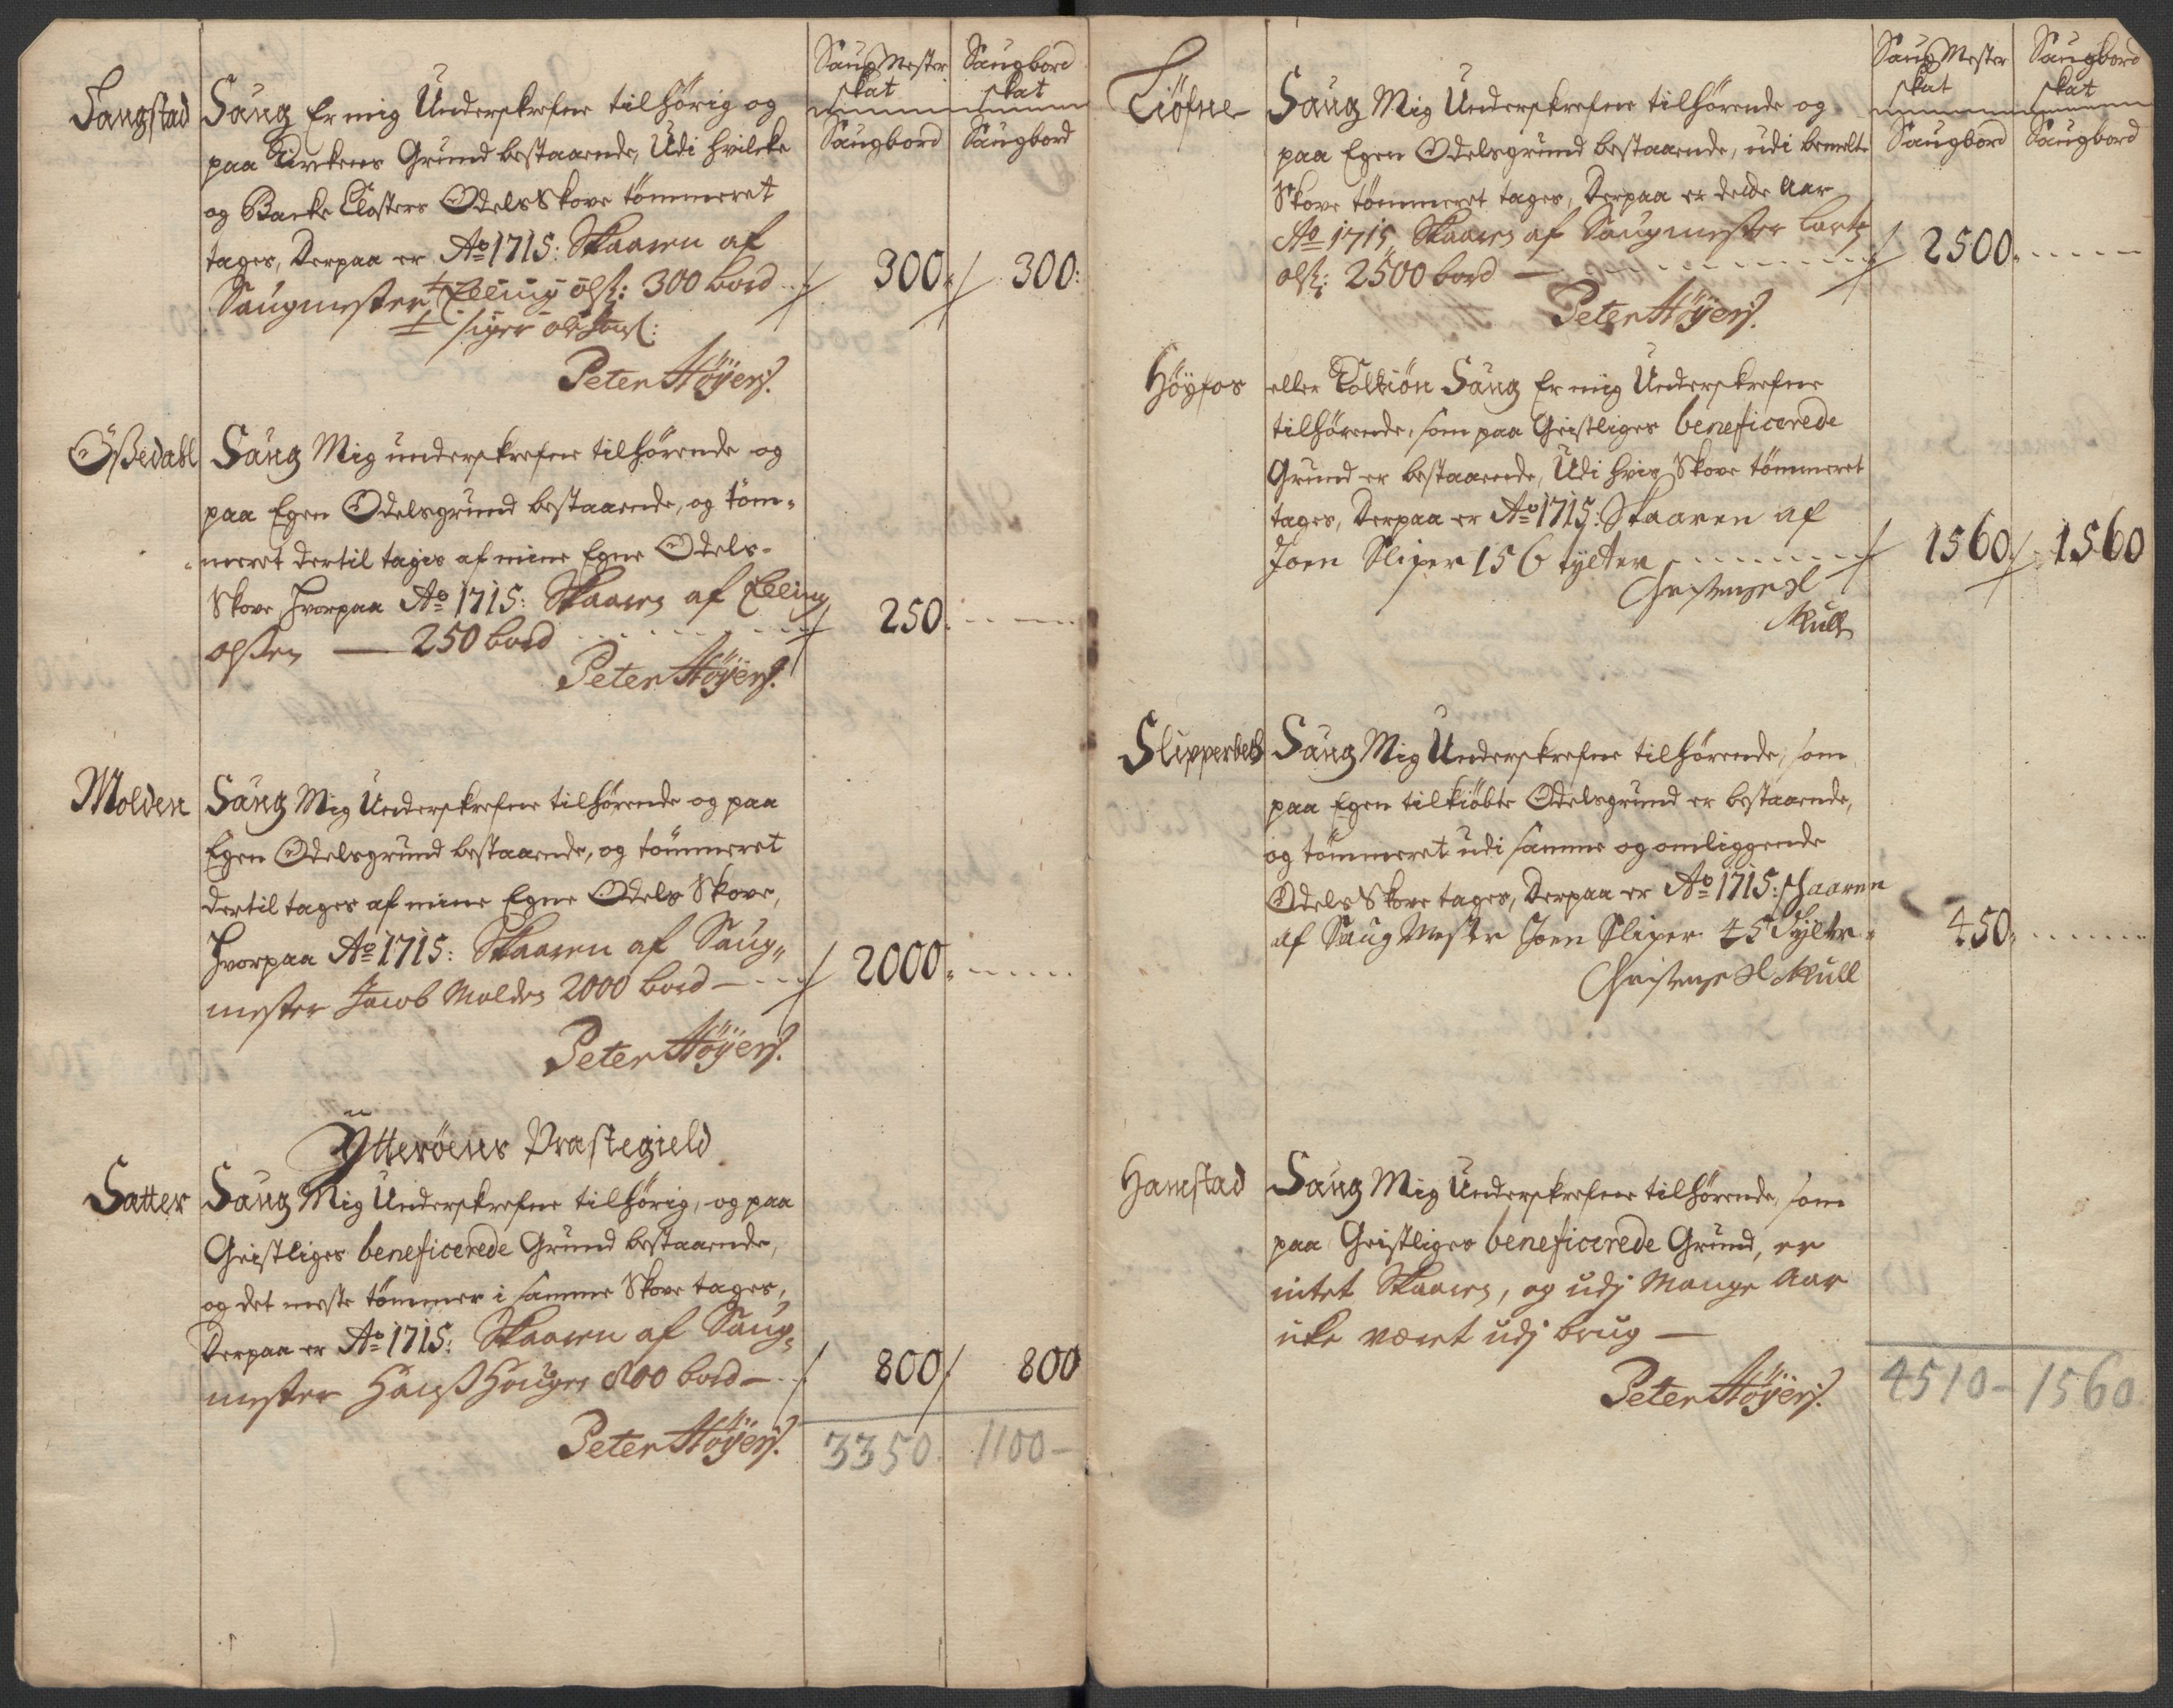 SaugMester Saugbord
skat skat
Saugbord Saugbord
Sangstad Saug Er mig Underskrefne tilhörig og
paa Kirckens Grund bestaaende, Udi hvilcke
og Backe Closters OdelsSkove tömmeret
tages, Derpaa er Ao 1715: Skaaren af
Saugmester Elling olß: 300 bord 300 300
siger olß
Peter Höÿers.
Ößedahl Saug Mig underskrefne tilhörende og
paa Egen Odelsgrund bestaaende, og töm-
meret dertil tages af mine Egne Odels-
Skove, hvorpaa Ao 1715: Skaaren af Elling
olßen — 250 bord 250
Peter Höÿers.
Molden Saug Mig Underskrefne tilhörende og paa
Egen Odelsgrund bestaaende, og tömmeret
dertil tages af mine Egne Odels Skove,
hvorpaa Ao 1715: Skaaren af Saug-
mester Jacob Molden 2000 bord — 2000
Peter Höÿers.
Ÿtteröens Præstegield
Satter Saug Mig Underskrefne tilhörig, og paa
Geistliges beneficerede Grund bestaaende,
og det meste tömmer i samme Skove tages,
Derpaa er Ao 1715: Skaaren af Saug-
mester Hanß Hougen 800 bord — 800 800
Peter Höÿers.
3350 1100 —
SaugMester Saugbord
skat skat
Saugbord Saugbord
Tiöfne Saug Mig Underskrefne tilhörende og
paa Egen Odelsgrund bestaaende, udi bemelte
Skove tömmeret tages, Derpaa er dette Aar
Ao 1715 Skaaren af Saugmester Lartz
olß: 2500 bord — 2500
Peter Höÿers.
Höÿfos eller Koltiön Saug Er mig Underskrefne
tilhörende, som paa Geistliges beneficerede
Grund er bestaaende, Udi hvis Skove tömmeret
tages, Derpaa er Ao 1715: Skaaren af
Joen Sliper 156 tylter 1560 1560
Mull
Slipperbech Saug Mig Underskrefne tilhörende, som
paa Egen tilkiöbte Odelsgrund er bestaaende,
og tömmeret udi samme og omliggende
OdelsSkove tages, Derpaa er Ao 1715: skaaren
af Saug Mester Joen Sliper 45 Tylter 450
Mull
Hamstad Saug Mig Underskrefne tilhörende, som
paa Geistliges beneficerede Grund, er
intet Skaaren, og udj Mange Aar
icke været udj brug —
Peter Höÿers.
4510 — 1560